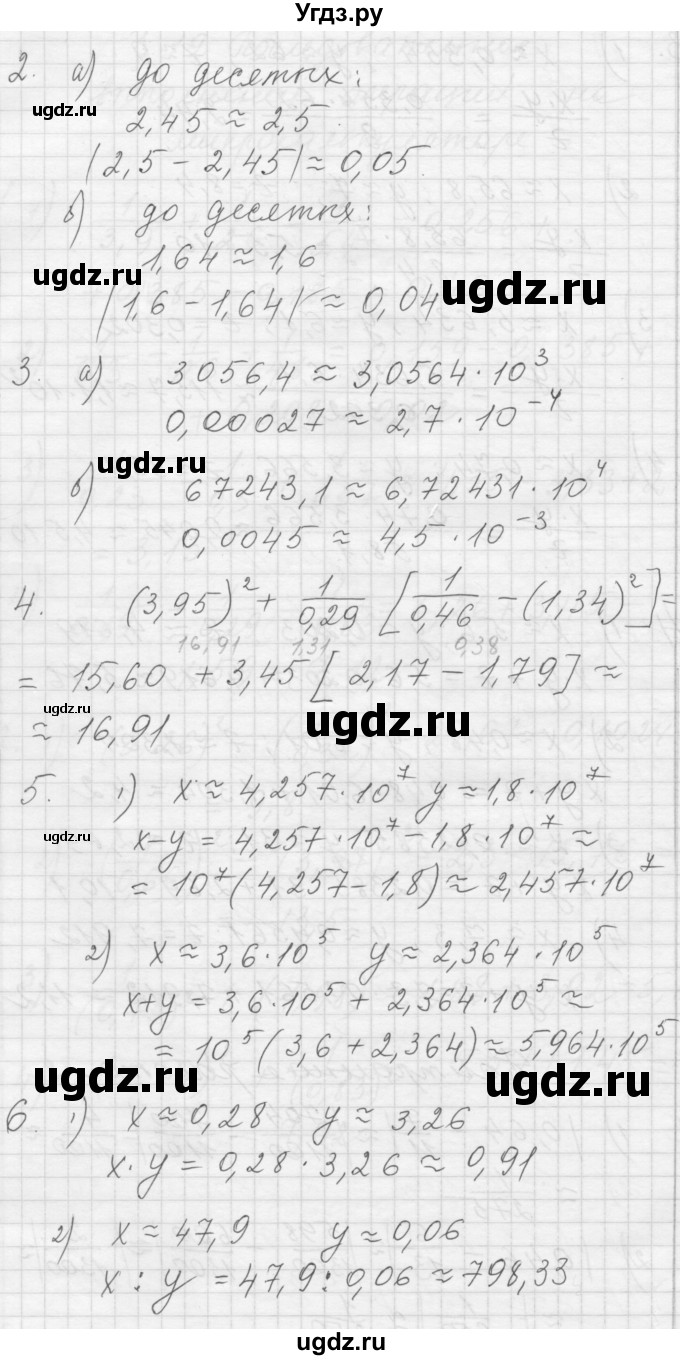 Угдз.ру
2. а) до десятых:
ugdz.ru
2,45 ≈ 2,5.
|2,5 - 2,45| ≈ 0,05.
б) до десятых:
1,64 ≈ 1,6
ugdz.ru
ugdz.ru
|1,6 - 1,64| ≈ 0,04
3. а) 3056,4 ≈ 3,0564 · 10³
0,00027 ≈ 2,7 · 10⁻⁴
ugdz.ru
б) 67243,1 ≈ 6,72431 · 10⁴
0,0045 ≈ 4,5 · 10⁻³
4. (3,95)² + 1/0,29 [1/0,46 - (1,34)²] =
16,91 1,31 0,38
= 15,60 + 3,45 [2,17 - 1,79] ≈
ugdz.ru
ugdz.ru
≈ 16,91
5. 1) x ≈ 4,257 · 10⁷ y ≈ 1,8 · 10⁷
ugdz.ru
x - y = 4,257 · 10⁷ - 1,8 · 10⁷ ≈
= 10⁷ (4,257 - 1,8) ≈ 2,457 · 10⁷
2) x ≈ 3,6 · 10⁵ y ≈ 2,364 · 10⁵
x + y = 3,6 · 10⁵ + 2,364 · 10⁵ ≈
= 10⁵ (3,6 + 2,364) ≈ 5,964 · 10⁵
ugdz.ru
ugdz.ru
6. 1) x ≈ 0,28 y ≈ 3,26
x · y = 0,28 · 3,26 ≈ 0,91
2) x ≈ 47,9 y ≈ 0,06
x : y = 47,9 : 0,06 ≈ 798,33
ugdz.ru